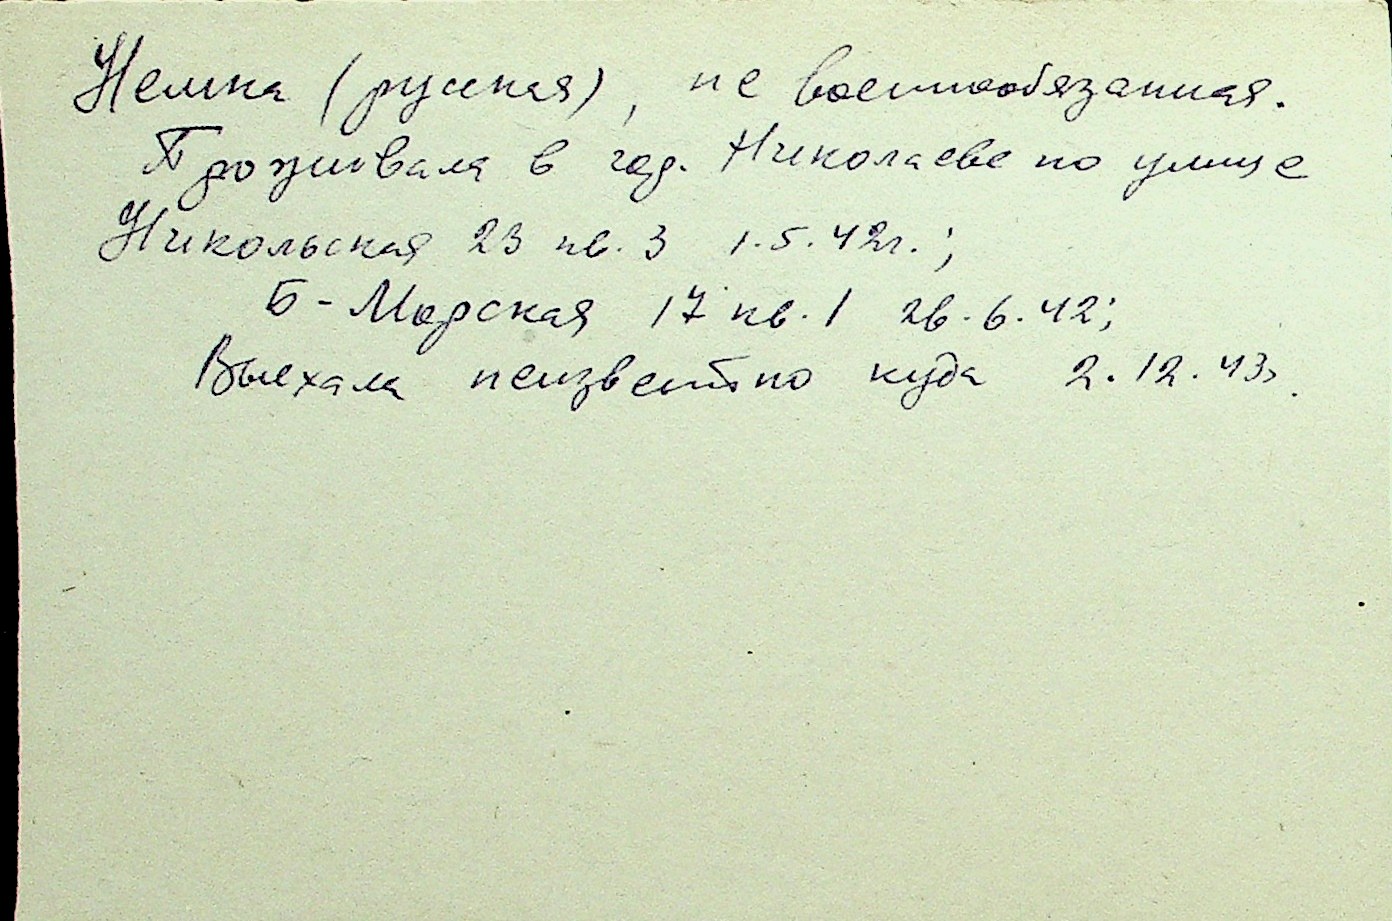 Немка (русская), не военнообязанная.
Проживала в гор. Николаеве по улице
Никольская 23 кв. 3 1.5.42г.;
Б-Морская 17 кв. 1 26.6.42;
Выехала неизвестно куда 2.12.43г.